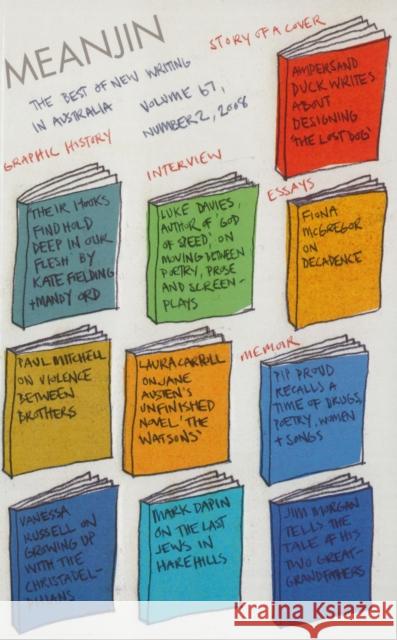 MEANJIN
THE BEST OF NEW WRITING
IN AUSTRALIA
VOLUME 67,
NUMBER 2, 2008
STORY OF A COVER
AMPERSAND
DUCK WRITES
ABOUT
DESIGNING
'THE LOST DOG'
GRAPHIC HISTORY
'THEIR HOOKS
FIND HOLD
DEEP IN OUR
FLESH' BY
KATE FIELDING
+ MANDY ORD
INTERVIEW
LUKE DAVIES,
AUTHOR OF 'GOD
OF SPEED', ON
MOVING BETWEEN
POETRY, PROSE
AND SCREEN-
PLAYS
ESSAYS
FIONA
McGREGOR
ON
DECADENCE
PAUL MITCHELL
ON VIOLENCE
BETWEEN
BROTHERS
LAURA CARROLL
ON JANE
AUSTEN'S
UNFINISHED
NOVEL 'THE
WATSONS'
MEMOIR
PIP PROUD
RECALLS A
TIME OF DRUGS,
POETRY, WOMEN
+ SONGS
VANESSA
RUSSELL ON
GROWING UP
WITH THE
CHRISTADEL-
PHIANS
MARK DAPIN
ON THE LAST
JEWS IN
HAREHILLS
JIM MORGAN
TELLS THE
TALE OF HIS
TWO GREAT-
GRANDFATHERS